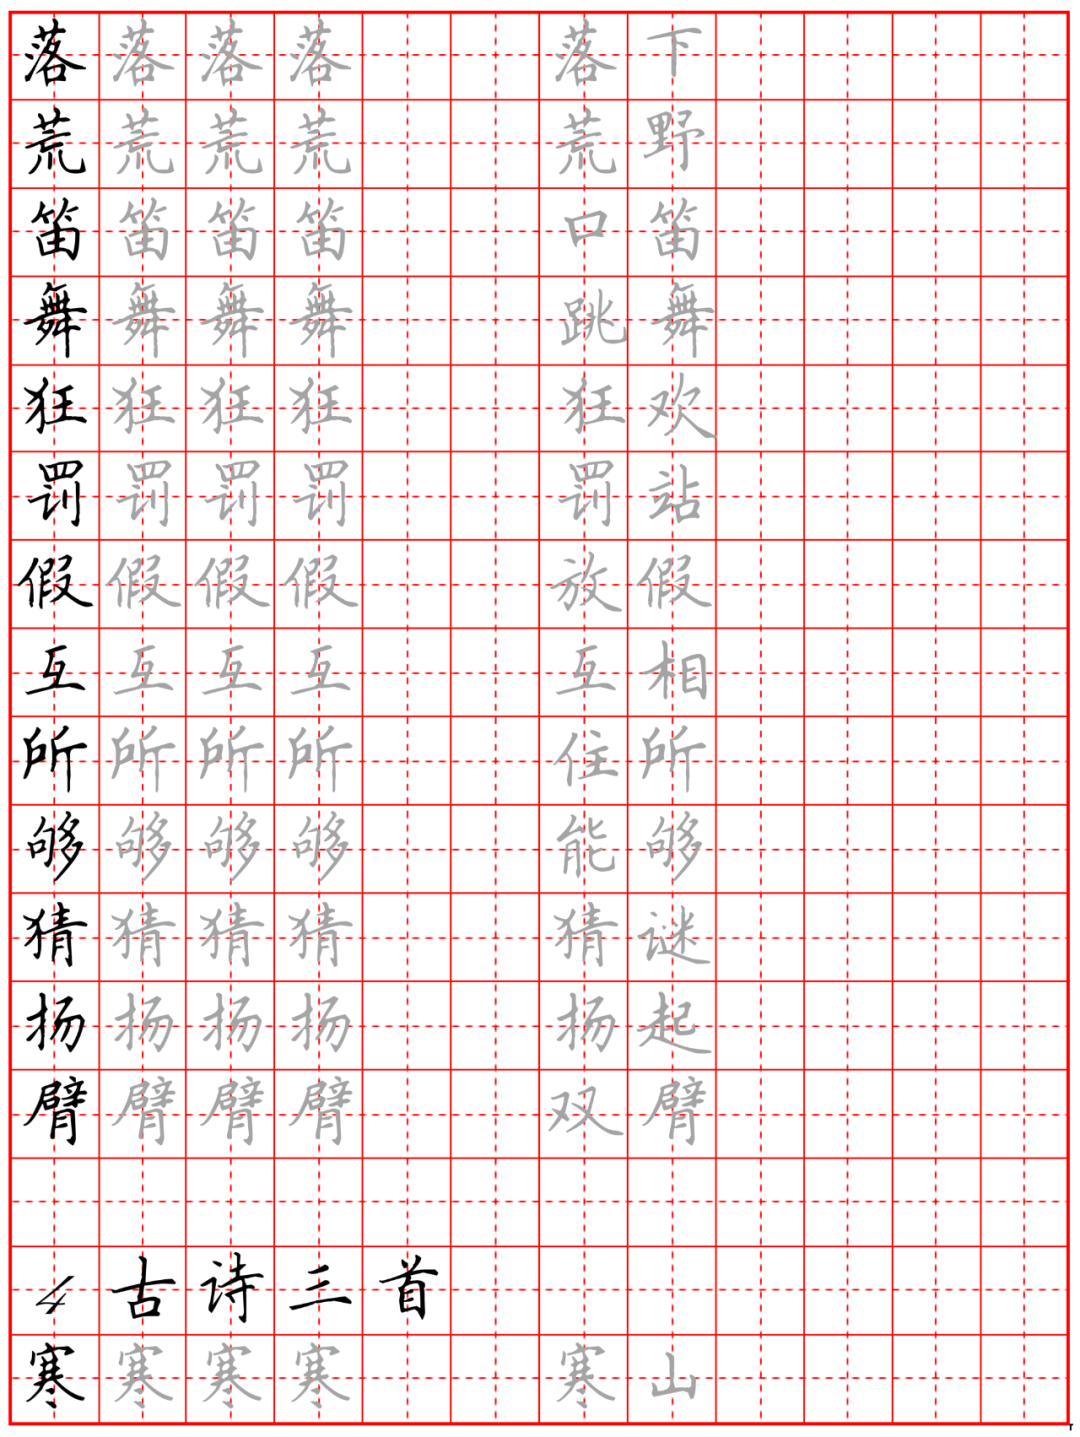 落落落落 落下
荒荒荒荒 荒野
笛笛笛笛 口笛
舞舞舞舞 跳舞
狂狂狂狂 狂欢
罚罚罚罚 罚站
假假假假 放假
互互互互 互相
所所所所 住所
够够够够 能够
猜猜猜猜 猜谜
扬扬扬扬 扬起
臂臂臂臂 双臂
4古诗三首
寒寒寒寒 寒山